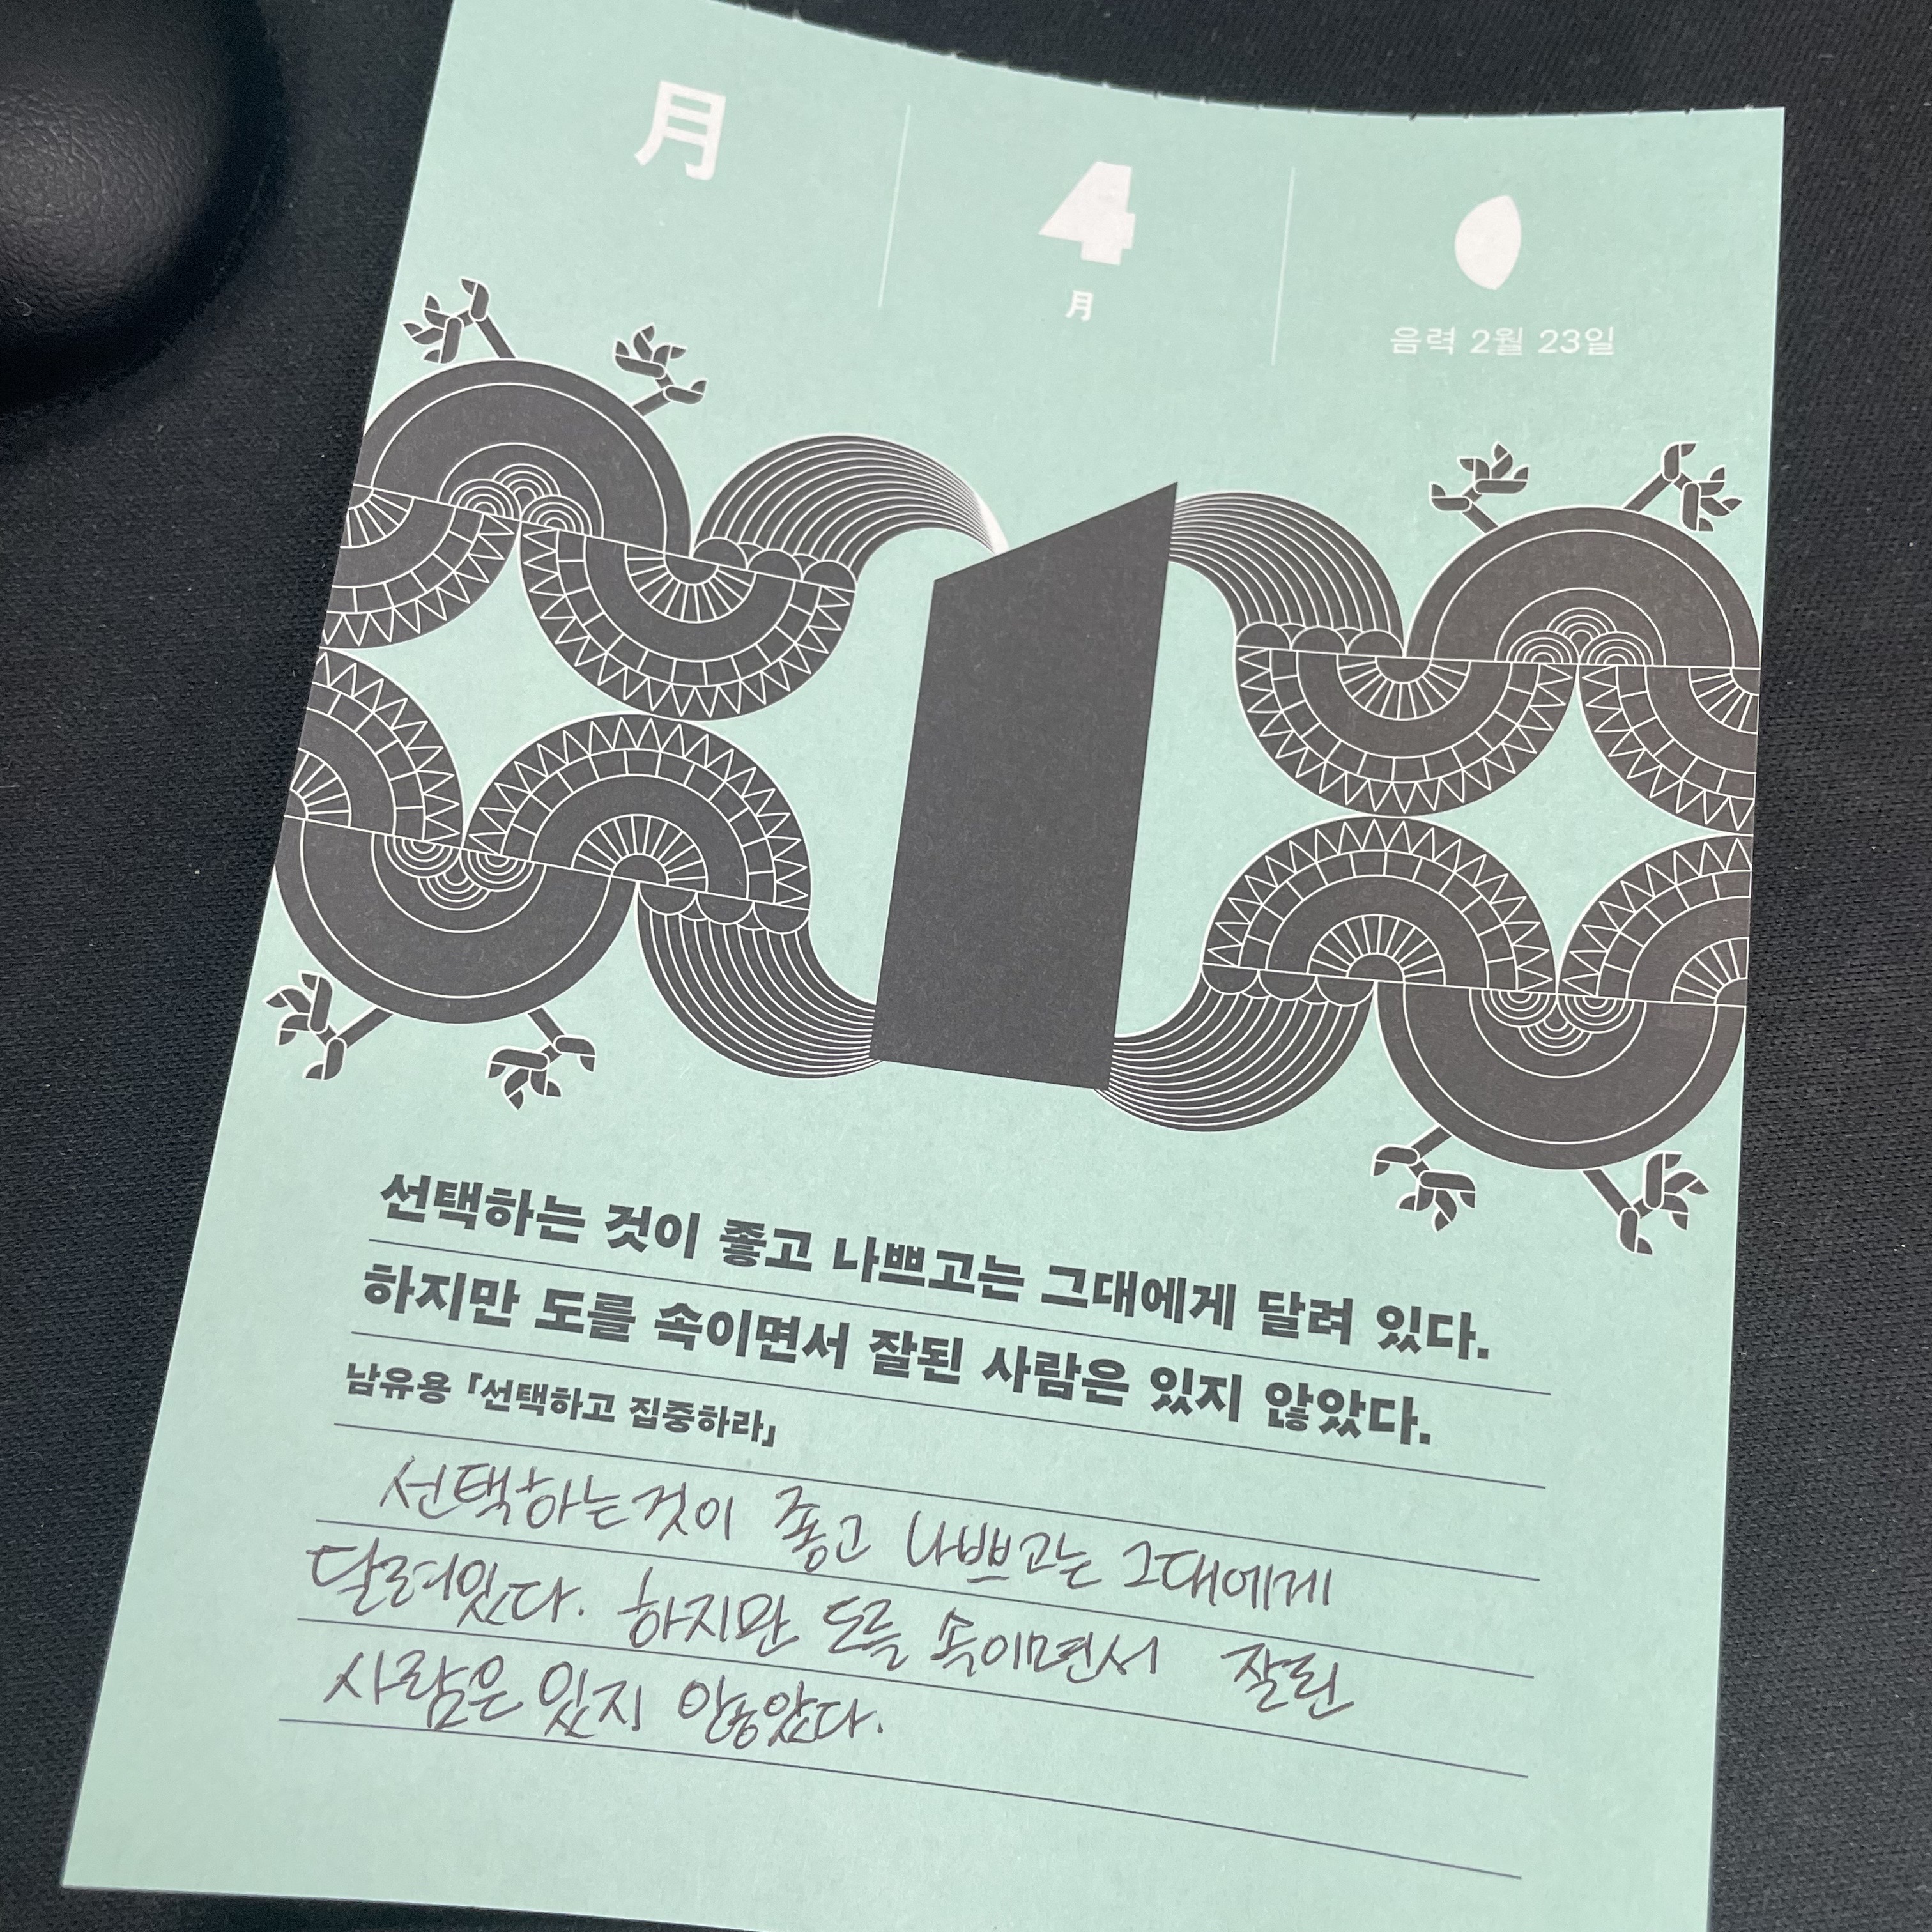 月
4
月
음력 2월 23일
1
선택하는 것이 좋고 나쁘고는 그대에게 달려 있다.
하지만 도를 속이면서 잘된 사람은 있지 않았다.
남유용 「선택하고 집중하라」
선택하는것이 좋고 나쁘고는 그대에게
달려있다. 하지만 도를 속이면서 잘된
사람은 있지 않았다.